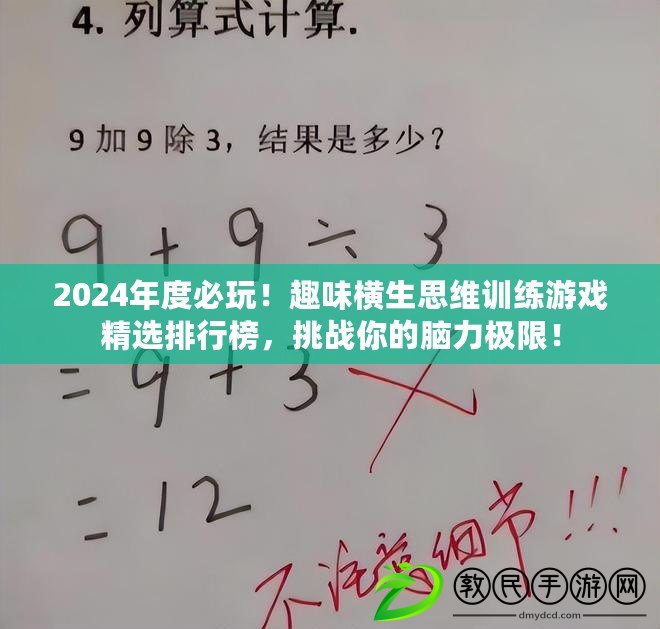 4. 列算式计算.
9 加 9 除 3，结果是多少？
9 + 9 ÷ 3
2024年度必玩！趣味横生思维训练游戏
精选排行榜，挑战你的脑力极限！
= 9 + 3
= 12
不注意细节!!!
教民手游网
dmydcd.com